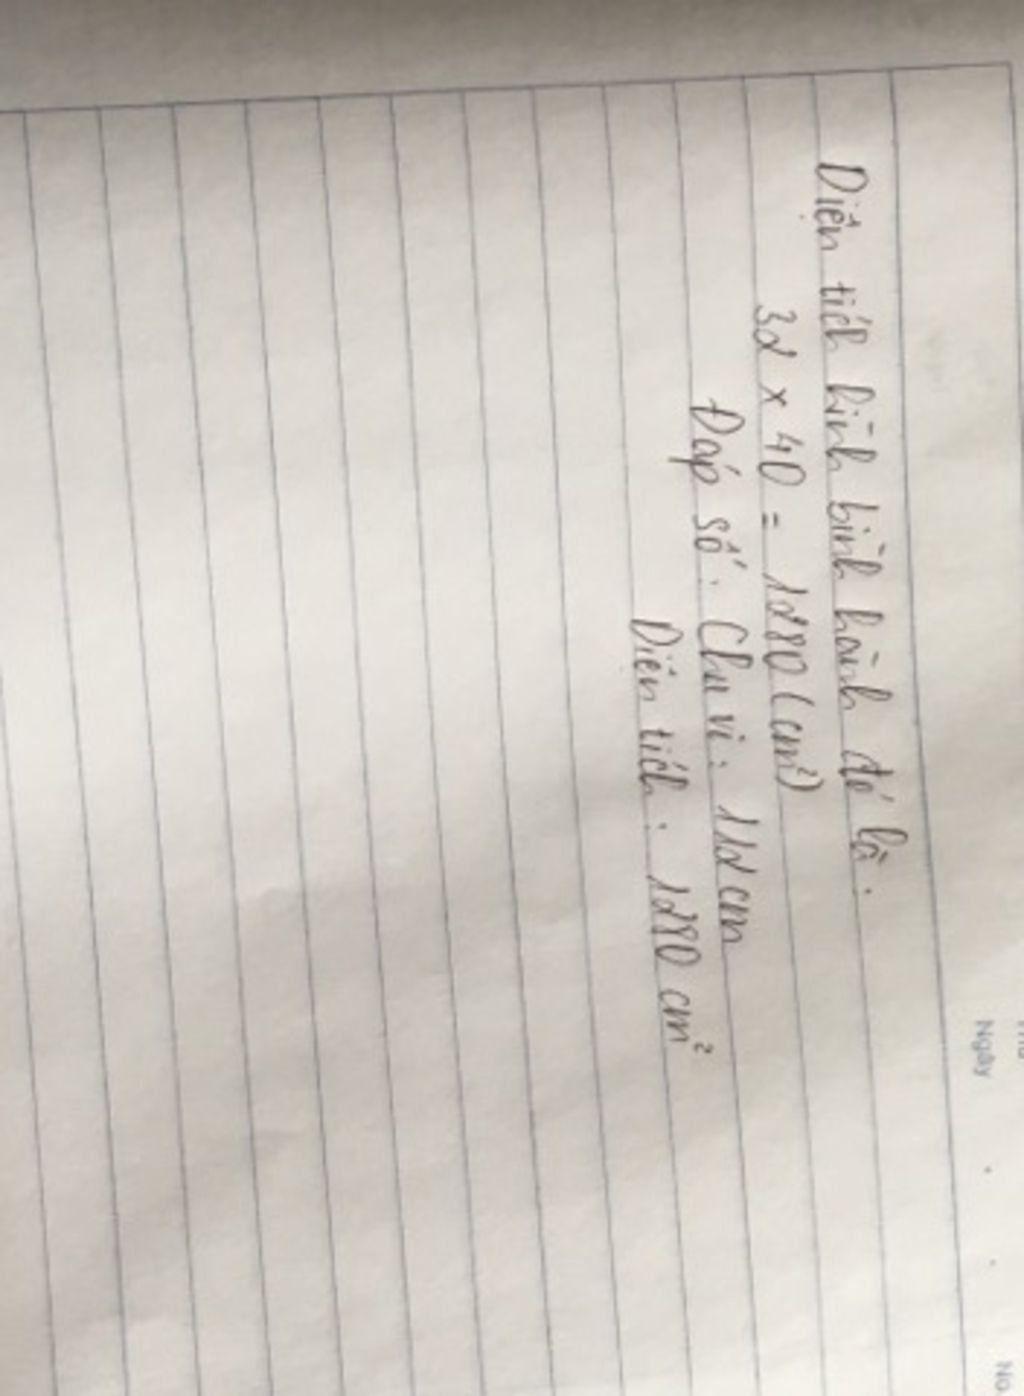 Ngày
No.
Diện tích hình bình hành đó là:
32 x 40 = 1280 (cm²)
Đáp số: Chu vi: 112 cm
Diện tích: 1280 cm²